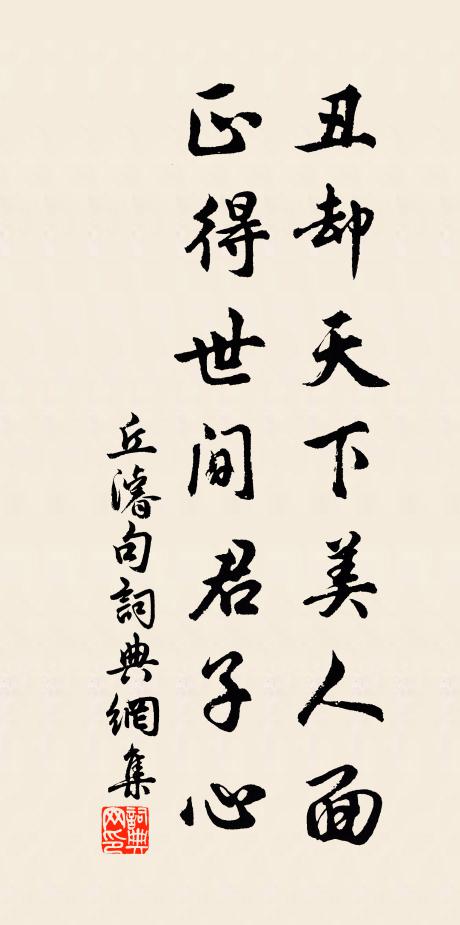 丑却天下美人面
正得世间君子心
丘濬句詞典網集
詞典网印